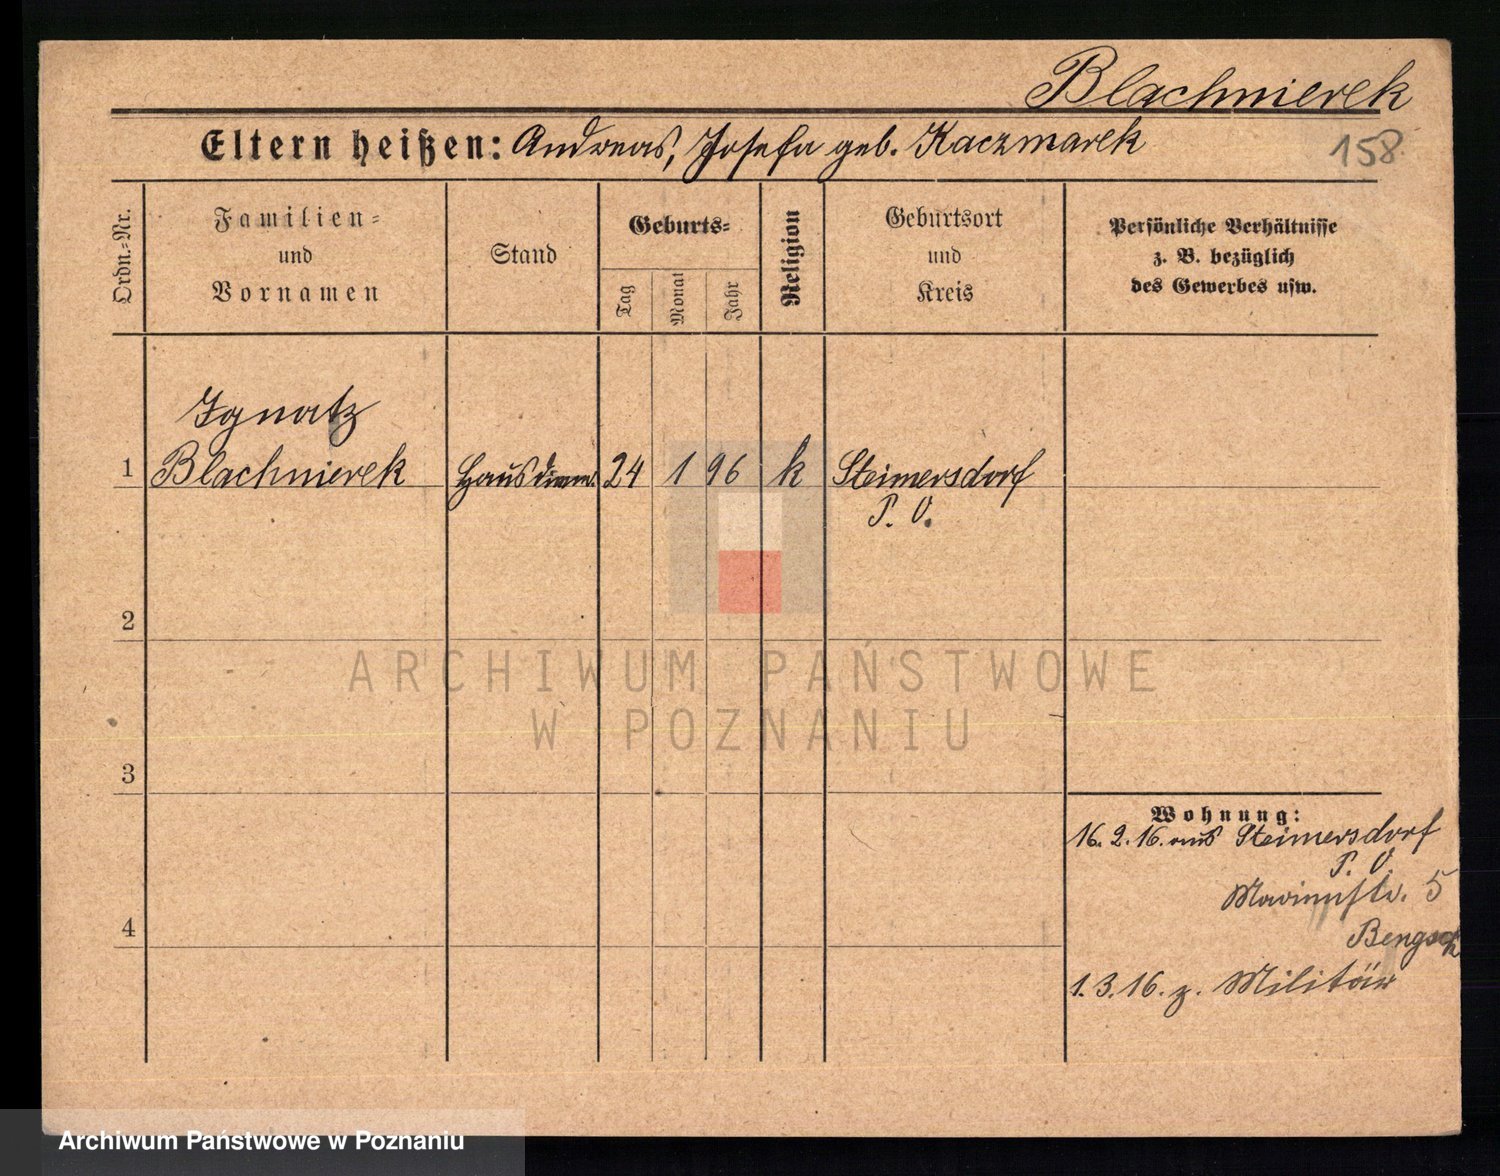 Blachnierek
Eltern heißen: Andreas, Josefa geb. Kaczmarek
158
Ordn.-Nr.
Familien-
und
Vornamen
Stand
Geburts-
Tag
Monat
Jahr
Religion
Geburtsort
und
Kreis
Persönliche Verhältnisse
z. B. bezüglich
des Gewerbes usw.
Ignatz
1 Blachnierek Hausdiener 24 1 96 k Steimersdorf
P. O.
2
ARCHIWUM PAŃSTWOWE
W POZNANIU
3
Wohnung:
16. 2. 16. aus Steimersdorf
P. O.
5
4
1. 3. 16. z. Militär
Archiwum Państwowe w Poznaniu